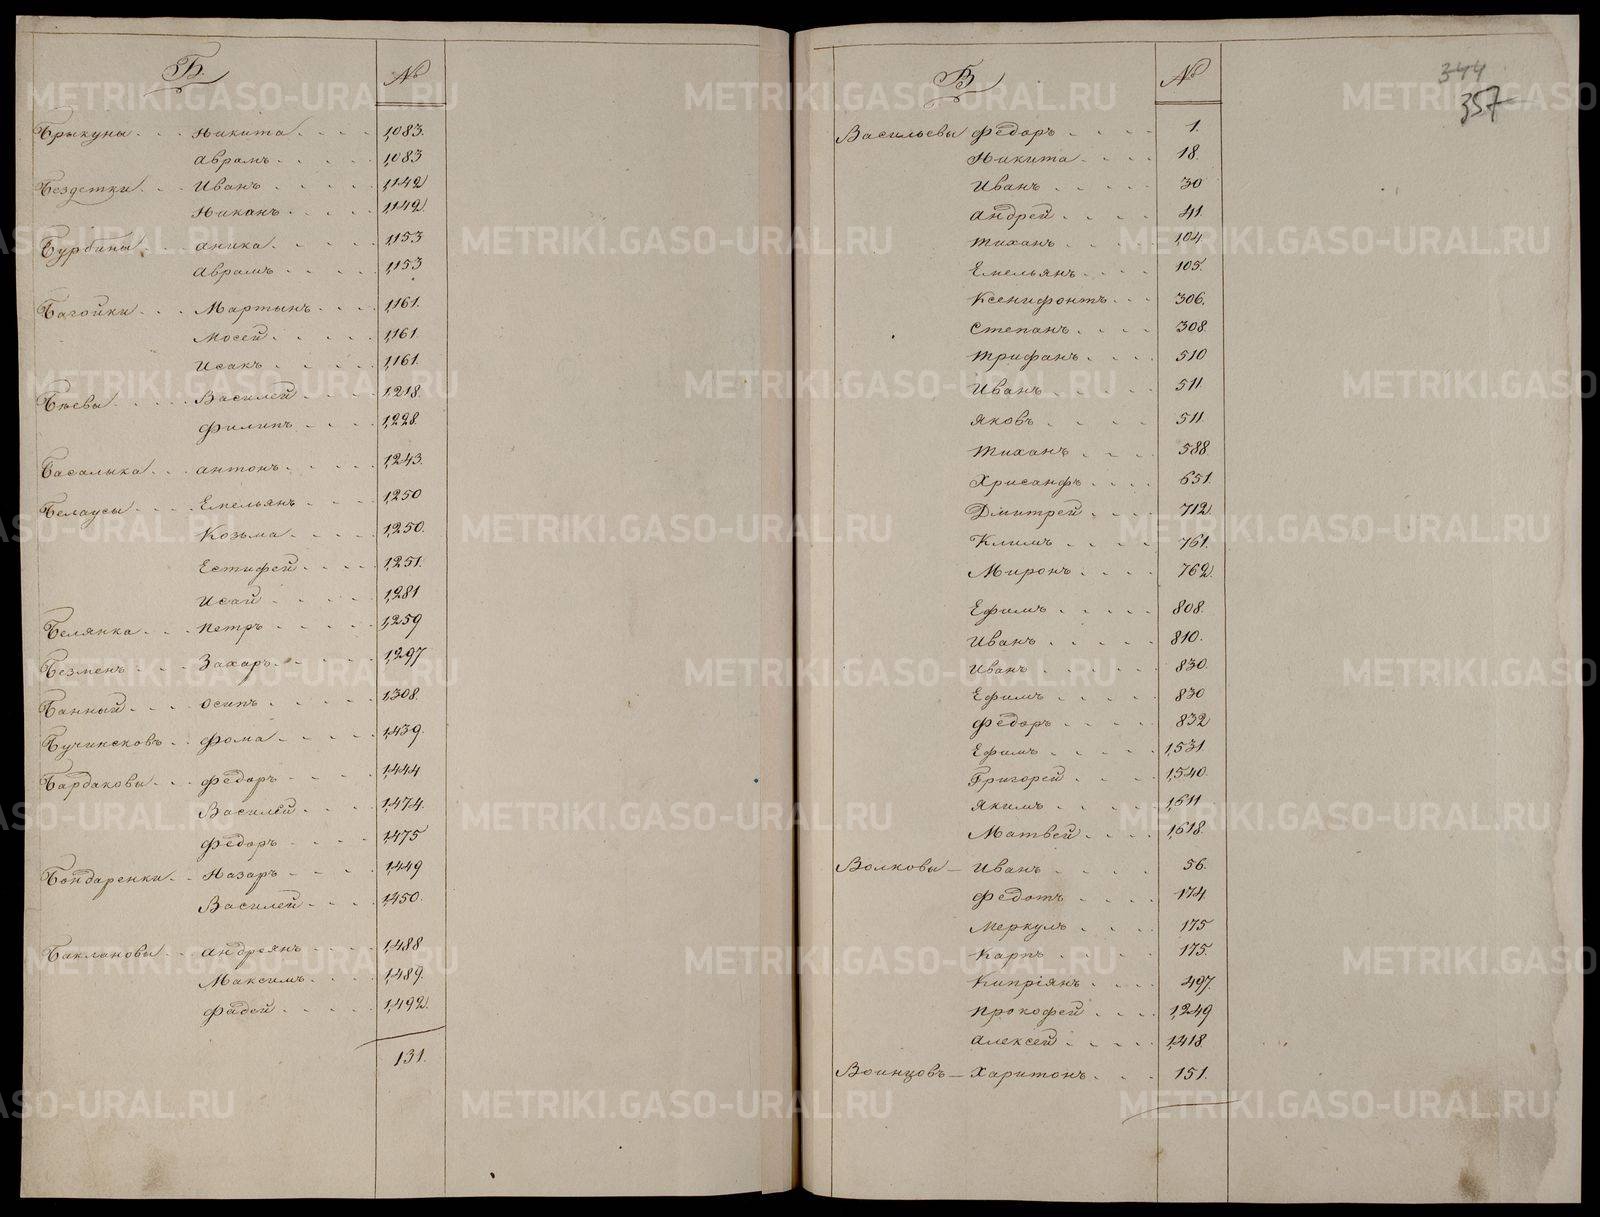 Б. №
Брыкуны Никита 1,083.
Аврамъ 1,083
Бездетки Иванъ 1,142
Никанъ 1,142
Бурбины аника 1,153
Аврамъ 1,153
Багойки Мартынъ 1,161.
Мосей 1,161
Исакъ 1,161
Бѣевы Василей 1,218.
Филипъ 1,228.
Басалыка антонъ 1,243.
Белаусы Емельянъ 1,250
Козьма 1,250.
Естифей 1,251.
Исай 1,281
Белянка Петръ 1,259
Безменъ Захаръ 1,297
Банный Осипъ 1,308.
Бучинсковъ Фома 1,439.
Бардаковы Федоръ 1,444
Василей 1,474.
Федоръ 1,475
Бондаренки Назаръ 1,449
Василей 1,450.
Баклановы Андреянъ 1,488
Максимъ 1,489.
Фадей 1,492.
131.
344
357
В №
Васильевы Федоръ 1.
Никита 18.
Иванъ 30
Андрей 41.
Тиханъ 104
Емельянъ 105.
Ксенифонтъ 306.
Степанъ 308.
Трифанъ 510
Иванъ 511
Яковъ 511.
Тиханъ 588
Хрисанфъ 651.
Дмитрей 712
Климъ 761.
Миронъ 762.
Ефимъ 808.
Иванъ 810.
Иванъ 830.
Ефимъ 830
Федоръ 832
Ефимъ 1,531
Григорей 1,540.
Якимъ 1,611
Матвей 1,618
Волковы Иванъ 56.
Федотъ 174.
Меркулъ 175
Карпъ 175.
Кипріянъ 497.
Прокофей 1,249
Алексей 1,418.
Воинцовъ Харитонъ 151.
METRIKI.GASO-URAL.RU